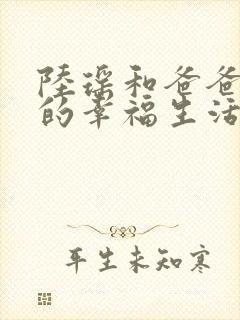 陸瑶和爸爸
的幸福生活
平生未知寒